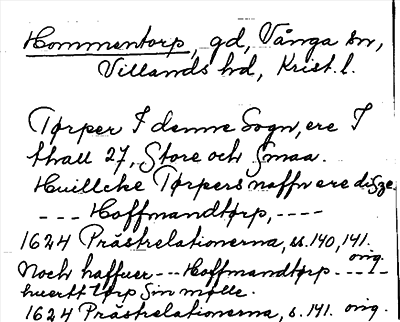 Hommentorp, gd, Vånga sn,
Villands hd, Krist. l.
Tørper I denne Sogn, ere I
thall 27, Store och Smaa.
Huillche Tørpers naffn ere disze.
--- Hoffmandtørp, ----
1624 Prästrelationerna, ss. 140, 141.
orig.
Noch haffuer --- Hoffmandtørp ----
huertt tørp sin mølle.
1624 Prästrelationerna, s. 141. orig.